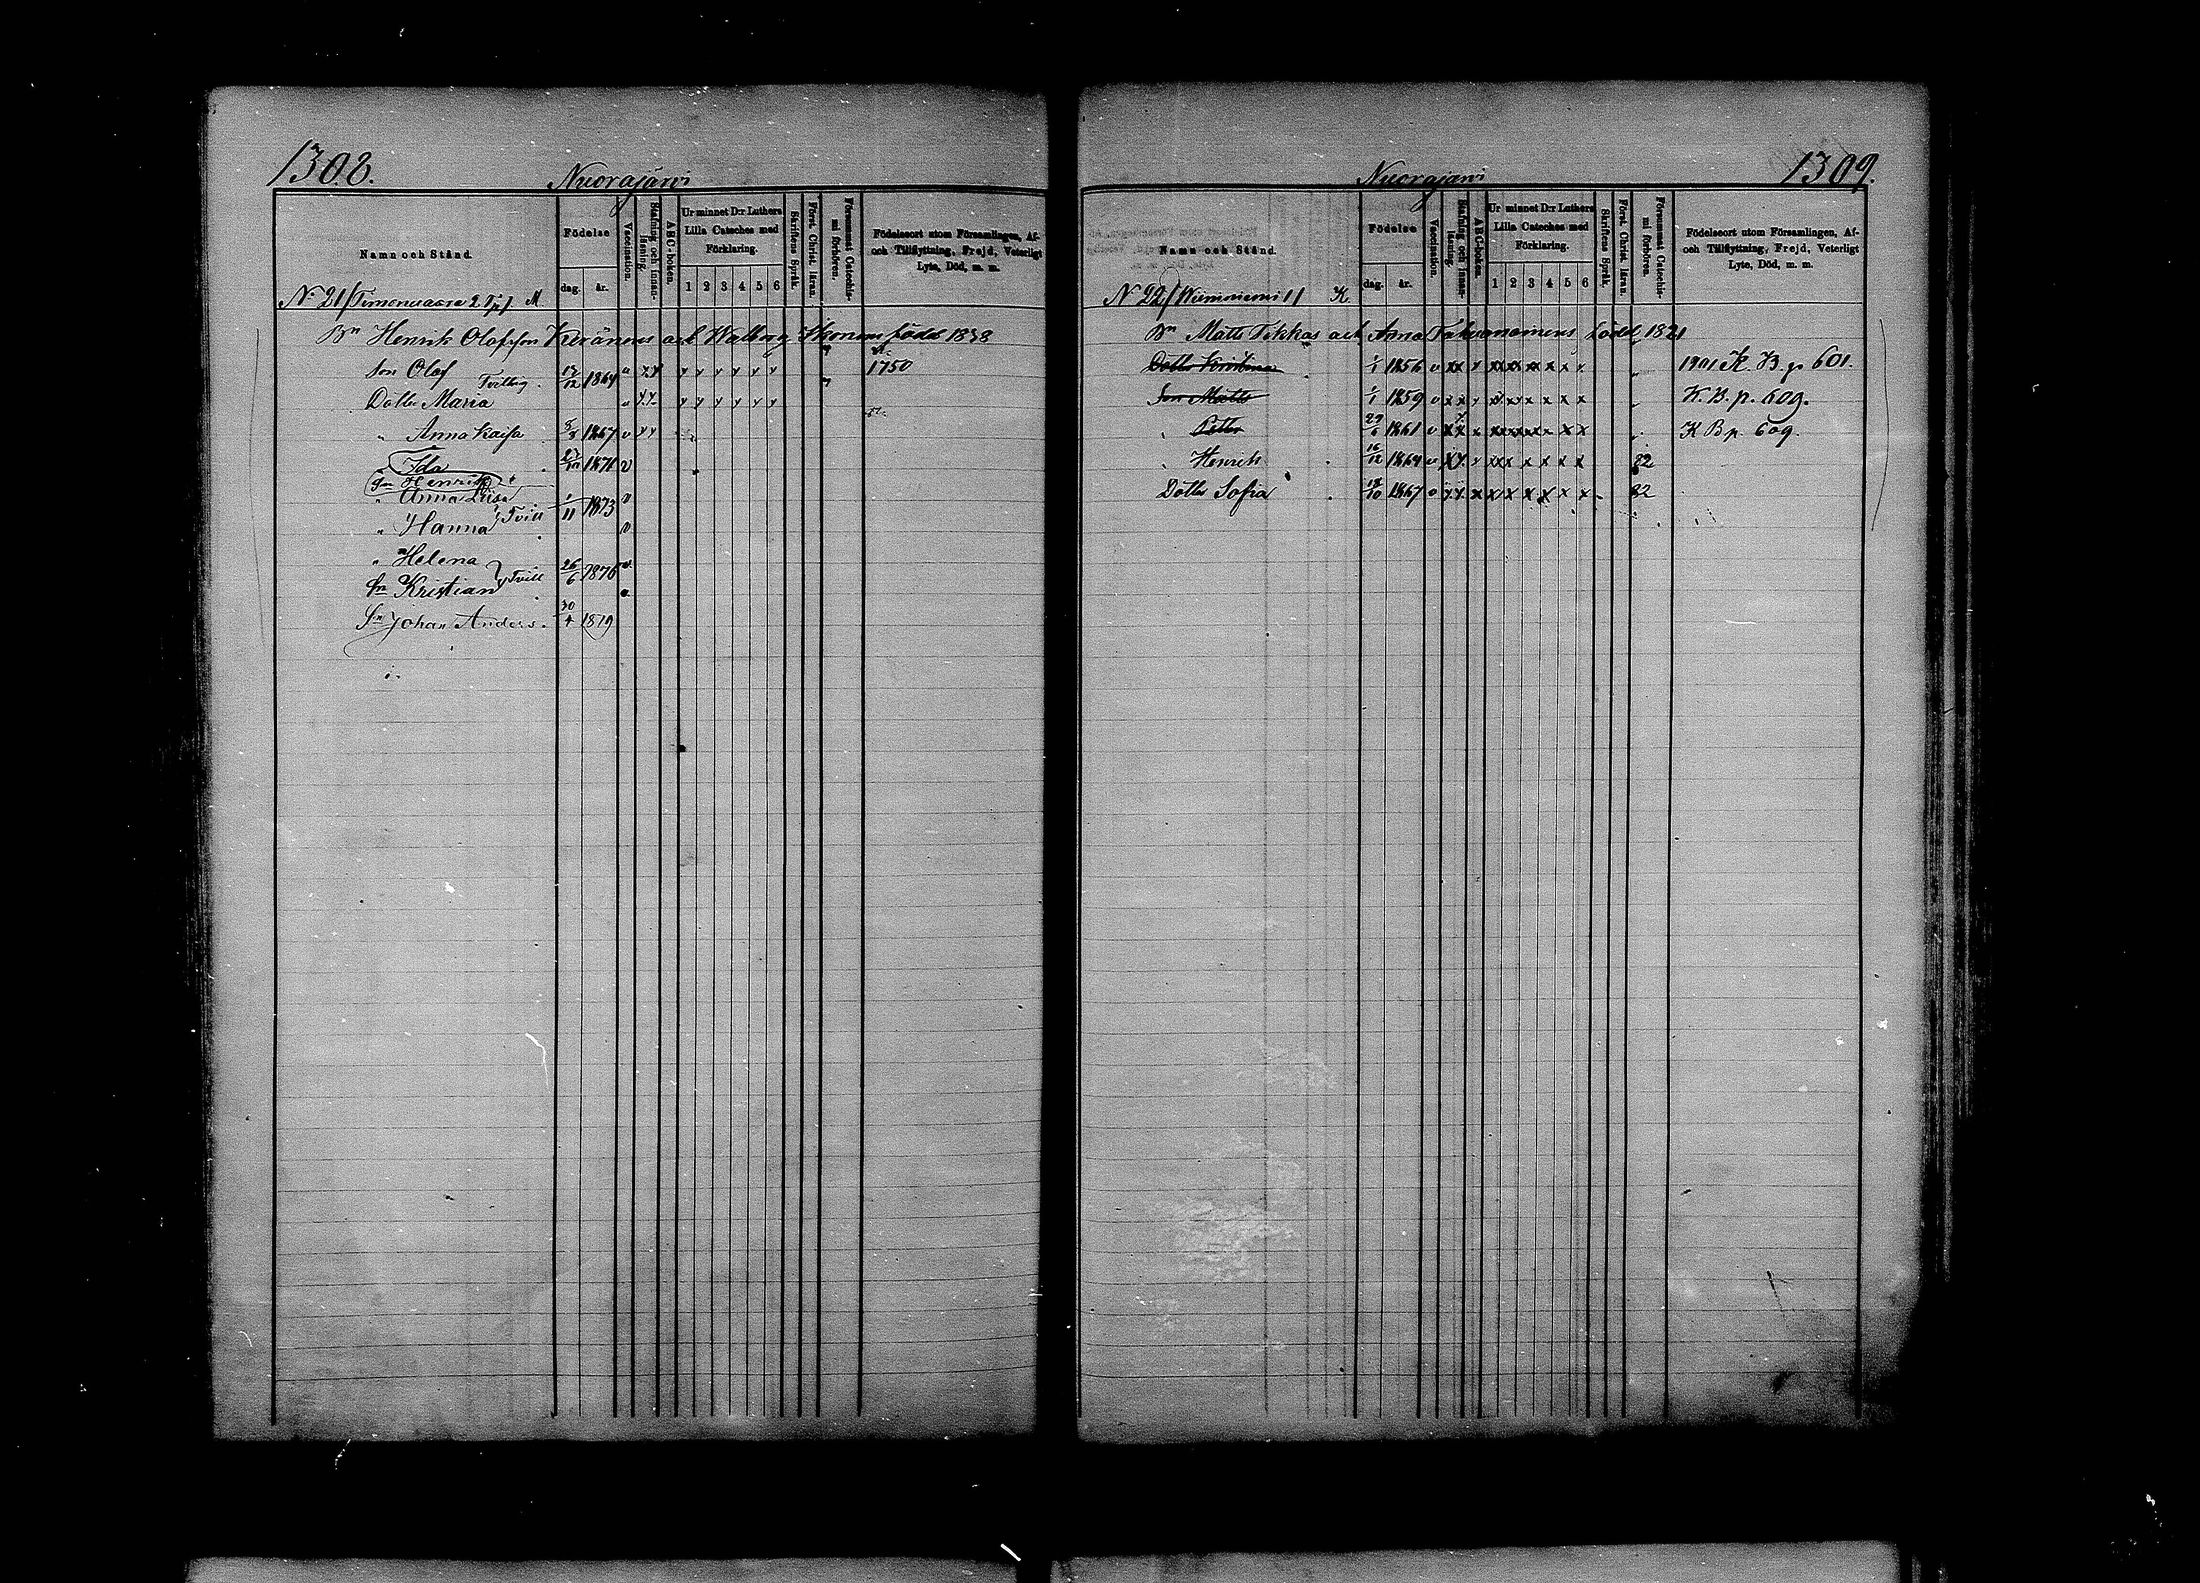 1308.
Nuorajärvi
Namn och Stånd
Födelse
dag. år.
Vaccination.
Stafning och innanläsning.
ABC-boken.
Ur minnet D:r Luthers Lilla Cateches med Förklaring.
1 2 3 4 5 6
Skriftens Språk.
Först. Christ. läran.
Försummat Catechismi förhören.
Födelseort utom Församlingen, Af- och Tillflyttning, Frejd, Veterligt Lyte, Död, m. m.
N. 21/ M.
Bn Henrik Olofsson Keränens och Walborg född 1838
Son Olof Tvilling 17/12 1864 v x x y y y y y y 1750
Dottr Maria v x x y y y y y y
" Anna Kaisa 1867 v x x
" Ida 1871 v
Sn Henrik
" Anna Lisa 1/11 1873 v
" Hanna } Tvill v
" Helena 26/6 1876 v
Sn Kristian } Tvill
Sn Johan Anders. 30/4 1879
1309.
Nuorajärvi
Namn och Stånd
Födelse
dag. år.
Vaccination.
Stafning och innanläsning.
ABC-boken.
Ur minnet D:r Luthers Lilla Cateches med Förklaring.
1 2 3 4 5 6
Skriftens Språk.
Först. Christ. läran.
Försummat Catechismi förhören.
Födelseort utom Församlingen, Af- och Tillflyttning, Frejd, Veterligt Lyte, Död, m. m.
N 22/ Niemi 11 K.
Bn Matts Tikkas och Anna född 1821
Dottr 1/1 1856 v xx y xx xx x x x x 1901 K. B. p 601.
Son Matts 1/1 1859 v x x x x x x x x x K. B. p. 609.
" Petter 29/6 1861 v x x x x x x x x x K B p. 609.
" Henrik 16/12 1864 v x x y x x x x x x 82
Dottr Sofia 18/10 1867 v y y x x x x x x x 82